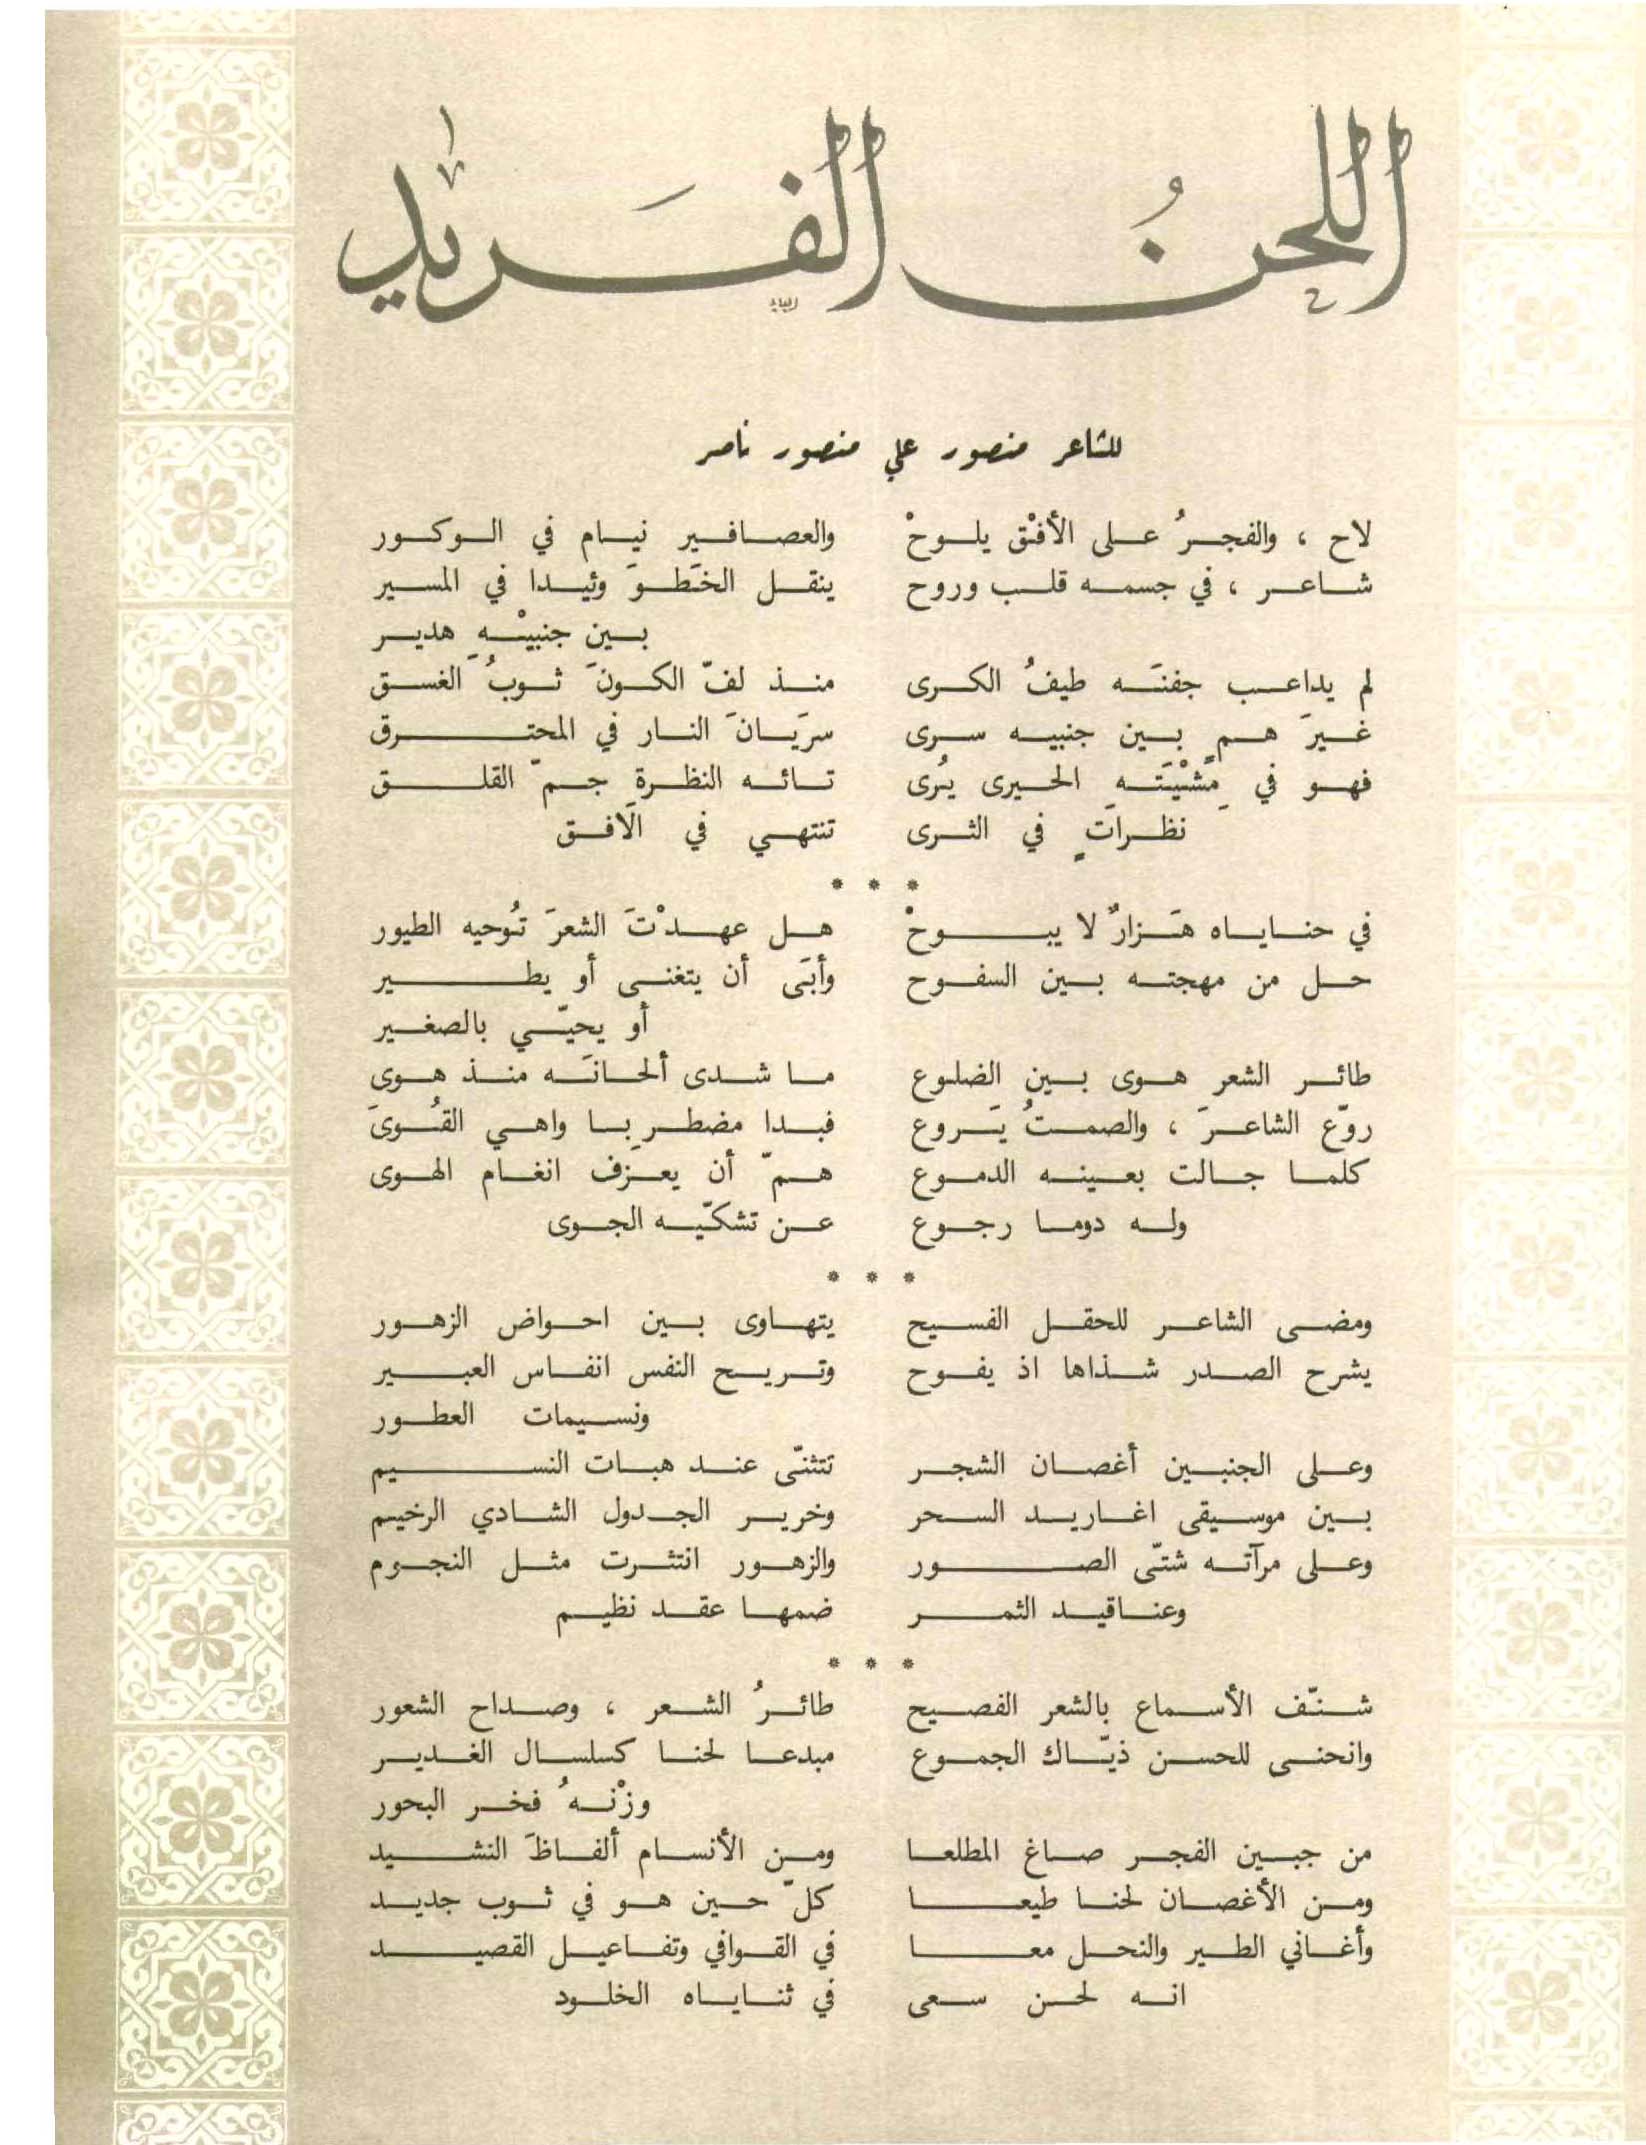 اللحنُ الفَريد
للشاعر منصور علي منصور ناصر
لاح ، والفجرُ على الأفْق يلوحْ والعصافير نيام في الوكور
شاعر ، في جسمه قلب وروح ينقل الخَطوَ وئيدا في المسير
بين جنبيْهِ هدير
لم يداعب جفنَه طيفُ الكرى منذ لفّ الكونَ ثوبُ الغسق
غيرَ همٍ بين جنبيه سرى سرَيانَ النار في المحترق
فهو في مِشْيَتَه الحيرى يُرى تائه النظرةِ جمّ القلق
نظراتٍ في الثرى تنتهي في الافق
* * *
في حناياه هَزارٌ لا يبوحْ هل عهدْتَ الشعرَ تُوحيه الطيور
حل من مهجته بين السفوح وأبَى أن يتغنى أو يطير
أو يحيّي بالصغير
طائر الشعر هوى بين الضلوع ما شدى ألحانَه منذ هوى
روّع الشاعرَ ، والصمتُ يَروع فبدا مضطرِبا واهي القُوىَ
كلما جالت بعينه الدموع همّ أن يعزِف انغام الهوى
وله دوما رجوع عن تشكّيه الجوى
* * *
ومضى الشاعر للحقل الفسيح يتهاوى بين احواض الزهور
يشرح الصدر شذاها اذ يفوح وتريح النفس انفاس العبير
ونسيمات العطور
وعلى الجنبين أغصان الشجر تتثنّى عند هبات النسيم
بين موسيقى اغاريد السحر وخرير الجدول الشادي الرخيم
وعلى مرآته شتّى الصور والزهور انتثرت مثل النجوم
وعناقيد الثمر ضمها عقد نظيم
* * *
شنّف الأسماع بالشعر الفصيح طائرُ الشعر ، وصداح الشعور
وانحنى للحسن ذيّاك الجموع مبدعا لحنا كسلسال الغدير
وزْنهُ فخر البحور
من جبين الفجر صاغ المطلعا ومن الأنسام ألفاظَ النشيد
ومن الأغصان لحنا طيعا كلّ حين هو في ثوب جديد
وأغاني الطير والنحل معا في القوافي وتفاعيل القصيد
انه لحن سعى في ثناياه الخلود